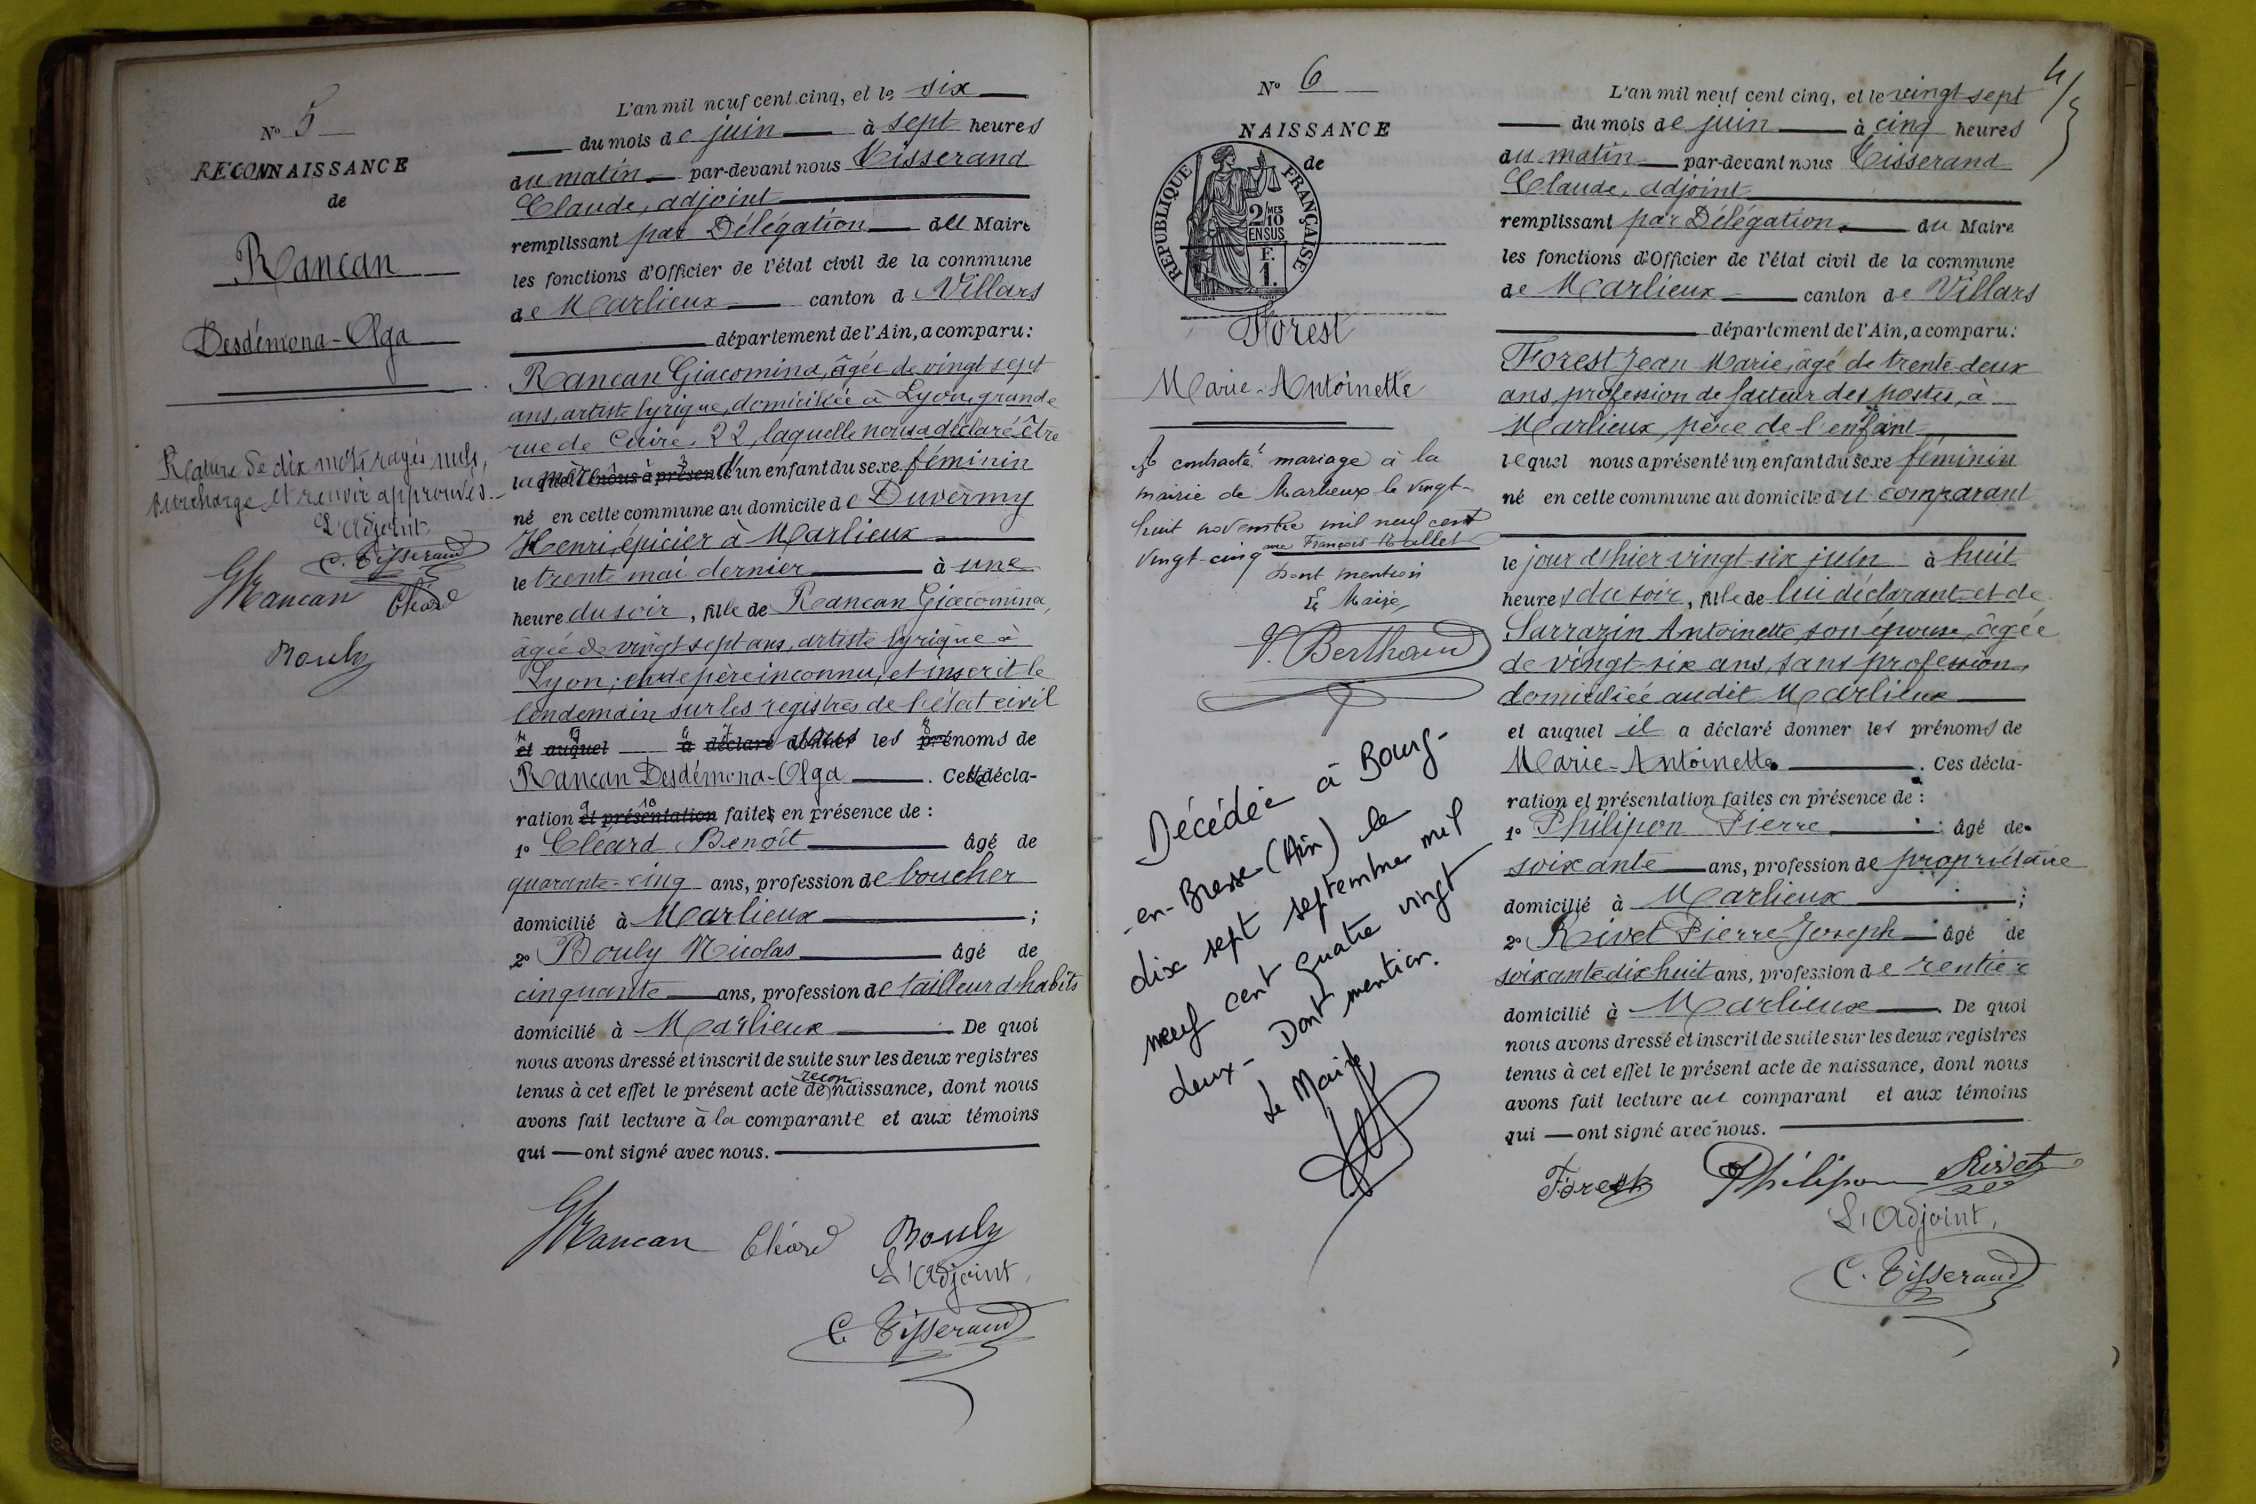 N° 5
RECONNAISSANCE
de
Rancan
Desdémona-Olga
Rature de dix mots rayés nuls,
surcharge et renvoi approuvés.
L'adjoint
C. Tisserand
GRancan Cléard
Bouly
L'an mil neuf cent cinq, et le six
du mois de juin à sept heures
du matin par-devant nous Tisserand
Claude, adjoint
remplissant par Délégation du Maire
les fonctions d'Officier de l'état civil de la commune
de Marlieux canton de Villars
département de l'Ain, a comparu:
Rancan Giacomina, âgée de vingt sept
ans, artiste lyrique, domiciliée à Lyon, grande
rue de Cuire, 22, laquelle nous a déclaré être
la mère d'un enfant du sexe féminin
né en cette commune au domicile de Duvermy
Henri, épicier à Marlieux
le trente mai dernier à une
heure du soir, fille de Rancan Giacomina,
âgée de vingt sept ans, artiste lyrique à
Lyon; et de père inconnu, et inscrit le
lendemain sur les registres de l'état civil
et auquel a déclaré donner les prénoms de
Rancan Desdémona-Olga. Cette décla-
ration et présentation faites en présence de :
1° Cléard Benoît âgé de
quarante-cinq ans, profession de boucher
domicilié à Marlieux ;
2° Bouly Nicolas âgé de
cinquante ans, profession de tailleur d'habits
domicilié à Marlieux De quoi
nous avons dressé et inscrit de suite sur les deux registres
recon
tenus à cet effet le présent acte de naissance, dont nous
avons fait lecture à la comparante et aux témoins
qui — ont signé avec nous.
GRancan Cléard Bouly
L'adjoint,
C. Tisserand
N° 6
NAISSANCE
de
REPUBLIQUE FRANÇAISE
2/10 MES
EN SUS
F.
1.
Forest
Marie-Antoinette
A contracté mariage à la
mairie de Marlieux le vingt-
huit novembre mil neuf cent
vingt-cinq avec François Mallet
Dont mention
Le Maire,
V. Berthaud
Décédée à Bourg-
en-Bresse (Ain) le
dix sept septembre mil
neuf cent quatre vingt
deux - Dont mention.
Le Maire
4/5
L'an mil neuf cent cinq, et le vingt sept
du mois de juin à cinq heures
du matin par-devant nous Tisserand
Claude, adjoint
remplissant par Délégation du Maire
les fonctions d'Officier de l'état civil de la commune
de Marlieux canton de Villars
département de l'Ain, a comparu:
Forest Jean Marie, âgé de trente-deux
ans, profession de facteur des postes, à
Marlieux, père de l'enfant
lequel nous a présenté un enfant du sexe féminin
né en cette commune au domicile du comparant
le jour d'hier vingt-six juin à huit
heures du soir, fille de lui déclarant et de
Sarrazin Antoinette, son épouse, âgée
de vingt-six ans, sans profession,
domiciliée audit Marlieux
et auquel il a déclaré donner les prénoms de
Marie-Antoinette. Ces décla-
ration et présentation faites en présence de :
1° Philipon Pierre âgé de
soixante ans, profession de propriétaire
domicilié à Marlieux ;
2° Rivet Pierre Joseph âgé de
soixante dix huit ans, profession de rentier
domicilié à Marlieux De quoi
nous avons dressé et inscrit de suite sur les deux registres
tenus à cet effet le présent acte de naissance, dont nous
avons fait lecture au comparant et aux témoins
qui — ont signé avec nous.
Forest Philipon Rivet
L'adjoint,
C. Tisserand